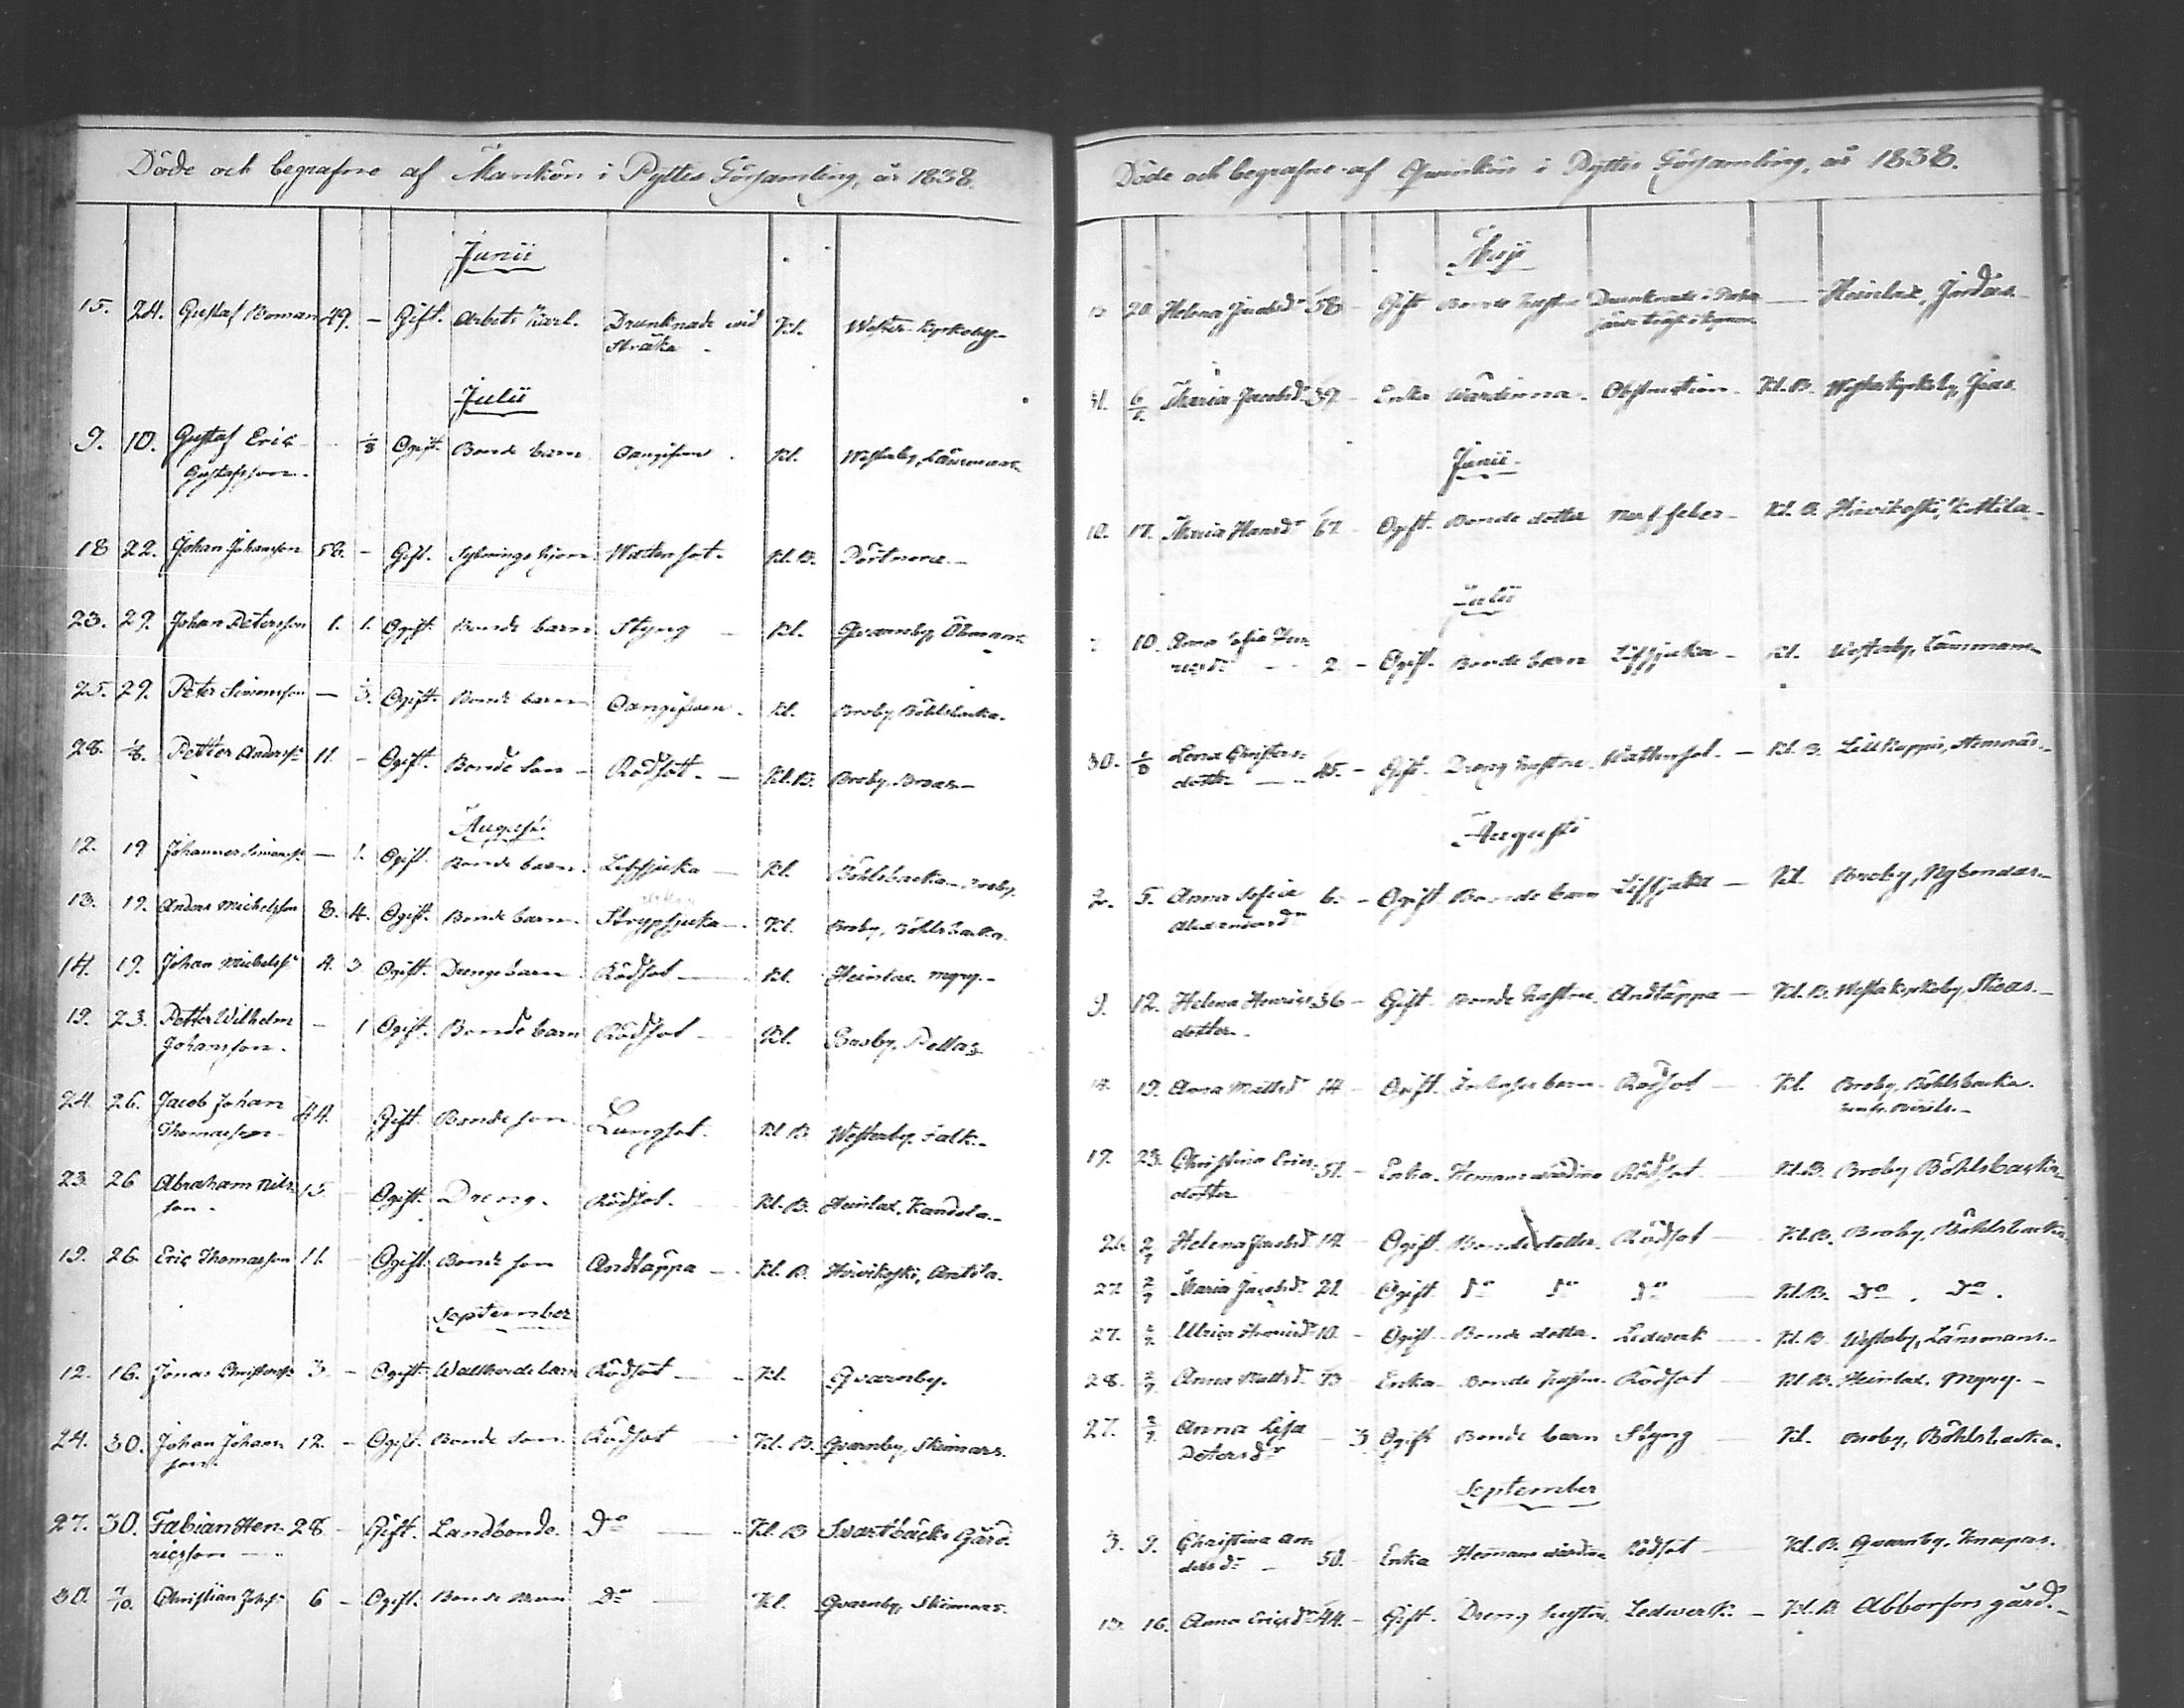 Döde och begrafne af Mankön i Pyttis Församling, år 1838.
Junii
15. 24. Gustaf Boman 49. - Gift. Arbets Karl. Drunknade wid Kl. Wester Kyrkoby
Julii
9. 10. Gustaf Eric - 1/8 Ogift. Bonde barn Oangifwen. Kl. Westerby, Länsmans
Gustafsson.
18 22. Johan Johansson 56. - Gift. Sytnings hjon Wattensot. Kl. B. Pörtnora.
23. 29. Johan Petersson 1. 1. Ogift. Bonde barn Styng - Kl. Qvarnby, Öbmans
25. 29. Peter Simonsson - 3. Ogift. Bonde barn Oangifwen. Kl. Broby, Böhlsbacka.
28. 1/8. Petter Anderss: 11. - Ogift. Bonde Son - Rödsot. - Kl. B. Broby, Broas
Augusti
12. 19 Johannes Simonss: - 1. Ogift. Bonde barn. Lefsjuka - Kl. Böhlsbacka Broby.
13. 19. Anders Michelsson 8. 4. Ogift. Bonde barn. Strypsjuka - Kl. Broby, Böhlsbacka.
14. 19. Johan Michelss: 4. 3 Ogift. Drengebarn Rödsot - Kl. Heinlax. Myry.
19. 23. Petter Wilhelm - 1 Ogift. Bonde barn Rödsot - Kl. Broby, Pellas
Johansson.
24. 26. Jacob Johan 44. Gift. Bonde son Lungsot. Kl. B. Westerby. Falk.
Thomasson
23. 26 Abraham Nils- 15. Ogift. Dreng. Rödsot. Kl. B. Heinlax, Kandola.
son.
19. 26. Eric Thomasson 11. - Ogift. Bonde son Andtäppa - Kl. B. Hirvikoski, Antila.
September
12. 16. Jonas Christerss: 3. - Ogift. Wallherde barn Rödsot - Kl. Qvarnby.
24. 30. Johan Johans- 12. - Ogift. Bonde Son. Rödsot - Kl. B. Qvarnby, Skinnars.
son.
27. 30. Fabian Hen- 28 - Gift. Landbonde. Do - Kl. B Svartbäcks Gård.
ricsson
30. 7/10. Christian Johss: 6 - Ogift. Bonde Barn Do - Kl. Qvarnby, Skinnars.
Döde och begrafne af Qvinkön i Pyttis Församling, år 1838.
Maji
20. Helena Jacobsdr 58 - Gift Bonde hustru Drunknade i - Heinlax, Jordas
31. 6/ Maria Jacobsdr 39. - Enka Wärdinna. Obstruction. Kl. B. Westerkyrkoby, Joas
Junii.
10. 17. Maria Hansdr 67. - Ogift. Bonde dotter Nerf feber - Kl. B. Hirvikoski, Kottila
Julii
10. Anna Sofia Hen-
ricsdr 2. - Ogift. Bonde barn Lefsjuka - Kl. Westerby, Länsmans
30. 1/8 Lena Christers-
dotter 45. - Gift. Dreng hustru. Wattensot. - Kl. B. Lill Kuppis, Stennäs
Augusti
2. 5. Anna Sofia 6. - Ogift Bonde barn Lefsjuka - Kl. Broby, Nybondas
Alexandersdr
9. 12. Helena Henrics 36 - Gift. Bonde hustru Andtäppa - Kl. B. Westerkyrkoby, Skoas.
dotter.
14. 19. Anna Mattsdr 14 - Ogift. Inhyses barn. Rödsot - Kl. Broby, Böhlsbacka.
19. 23. Christina Erics- 51. - Enka. Hemans wärdina Rödsot - Kl. B. Broby Böhlsbacka
dotter
26. 2/9 Helena Jacobsdr 14. - Ogift. Bonde dotter. Rödsot - Kl. B. Broby, Böhlsbacka
27. 2/9 Maria Jacobsdr 21. Ogift. do do do - Kl. B. do. do.
27. 2/9 Ulrica Henricsdr 10. - Ogift. Bonde dotter. Ledwerk - Kl. B. Westerby, Länsmans.
28. 2/9 Anna Mattsdr 73 - Enka Bonde hustru Rödsot - Kl. B. Heinlax. Myry.
27. 2/9 Anna Lisa - 3 Ogift Bonde barn Styng - Kl. Broby, Böhlsbacka.
Petersdr
September
3. 9. Christina An-
dersdr 50. - Enka Hemans wärdina Rödsot - Kl. B. Qvarnby, Knapas.
13. 16. Anna Ericsdr 44. - Gift. Dreng hustru Ledwerk. - Kl. B. Abborfors gård.